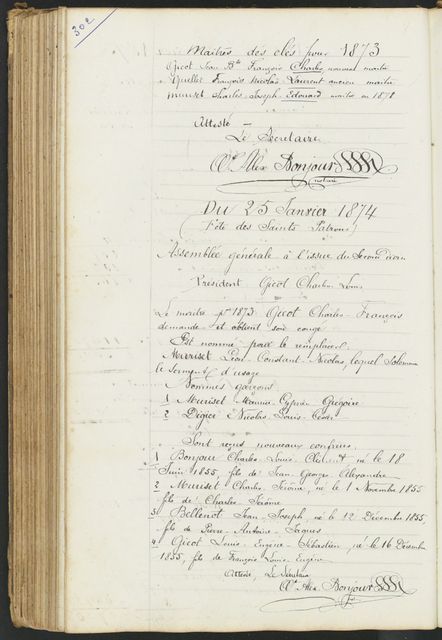 302
Maîtres des clés pour 1873
Gicot Jean Bte François Charles, nouveau maître
Quellet François Nicolas Laurent ancien maître
Muriset Charles Joseph Edouard maître en 1871
Atteste
Le Secrétaire
Alex Bonjour
notaire
Du 25 Janvier 1874
Fête des Saints Patrons
Assemblée générale à l'issue du Second
Président Gicot Charles Louis
Le maître pr 1873 Gicot Charles-François
demande et obtient son congé
Est nommé pour le remplacer
Muriset Léon-Constant-Nicolas, lequel Solennise
le serment d'usage
Nommés garçons
1 Muriset Maurice Cyprien Grégoire
2 Digier Nicolas-Louis-César
Sont reçus nouveaux confrères
1 Bonjour Charles-Louis-Clément né le 18
Juin 1855, fils de Jean-Georges Alexandre
2 Muriset Charles Jérôme, né le 1 Novembre 1855
fils de Charles-Jérôme
3 Bellenot Jean-Joseph né le 12 Décembre 1855,
fils de Pierre-Antoine-Jacques
4 Gicot Louis-Eugène-Sébastien, né le 16 Décembre
1855, fils de François-Louis-Eugène
Atteste, Le Secrétaire
Alex. Bonjour